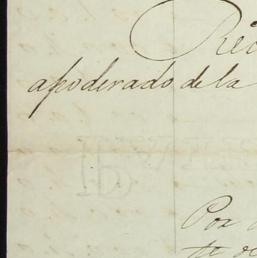 Rec
apoderado de la
Por
te de